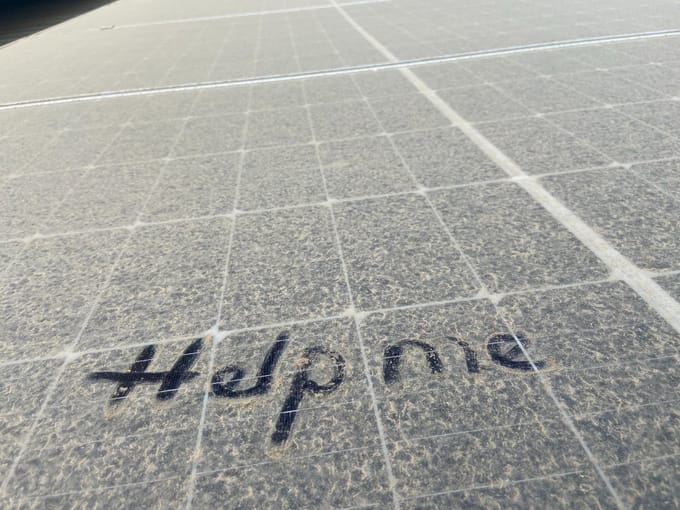 Help me